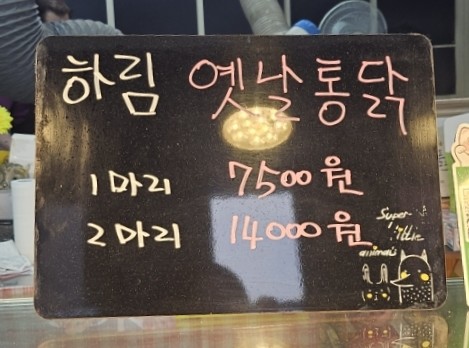 하림 옛날통닭
1마리 7500원
2마리 14000원
Super
little
animals